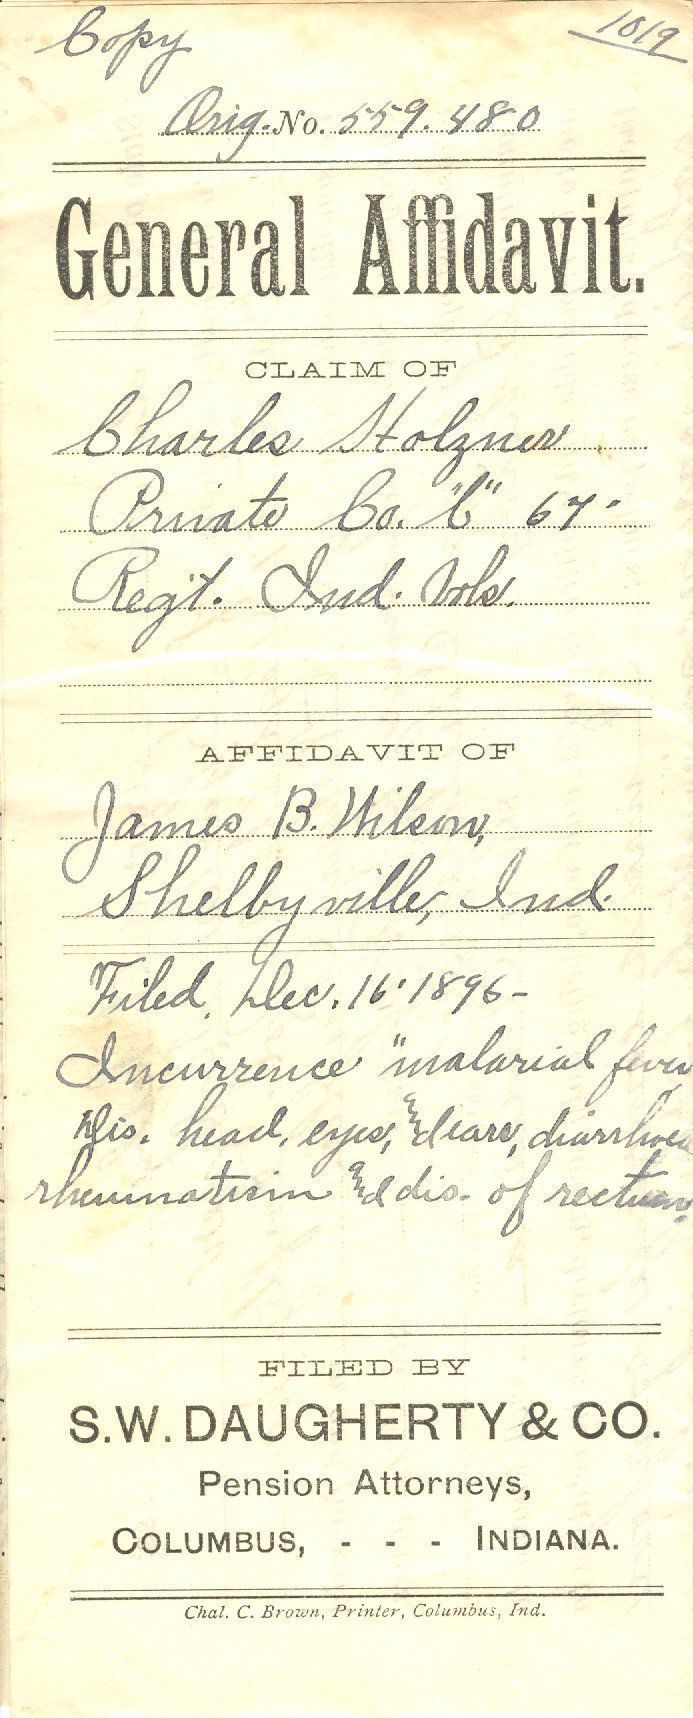 Copy
1019
Orig. No. 559.480
General Affidavit.
CLAIM OF
Charles Holzner
Private Co. "C" 67"
Regt. Ind. Vols.
AFFIDAVIT OF
James B. Wilson,
Shelbyville, Ind.
Filed, Dec. 16" 1896-
Incurrence "malarial fever
dis. head, eyes, and ears, diarrhoea
rheumatism and dis. of rectum.
FILED BY
S.W. DAUGHERTY & CO.
Pension Attorneys,
COLUMBUS, - - - INDIANA.
Chal. C. Brown, Printer, Columbus, Ind.